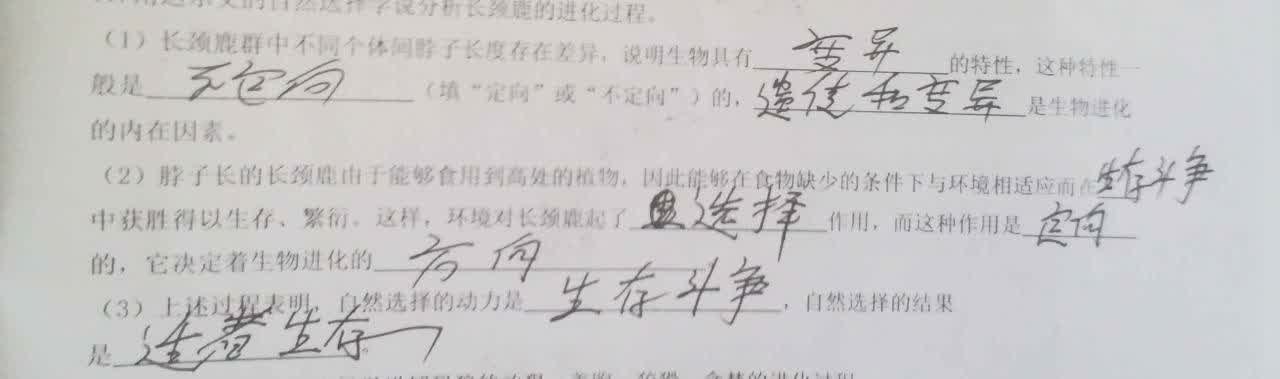 用达尔文的自然选择学说分析长颈鹿的进化过程。
（1）长颈鹿群中不同个体间脖子长度存在差异，说明生物具有 变异 的特性，这种特性一
般是 不定向 （填“定向”或“不定向”）的， 遗传和变异 是生物进化
的内在因素。
（2）脖子长的长颈鹿由于能够食用到高处的植物，因此能够在食物缺少的条件下与环境相适应而在 生存斗争
中获胜得以生存、繁衍。这样，环境对长颈鹿起了 选择 作用，而这种作用是 定向
的，它决定着生物进化的 方向
（3）上述过程表明，自然选择的动力是 生存斗争 ，自然选择的结果
是 适者生存 。